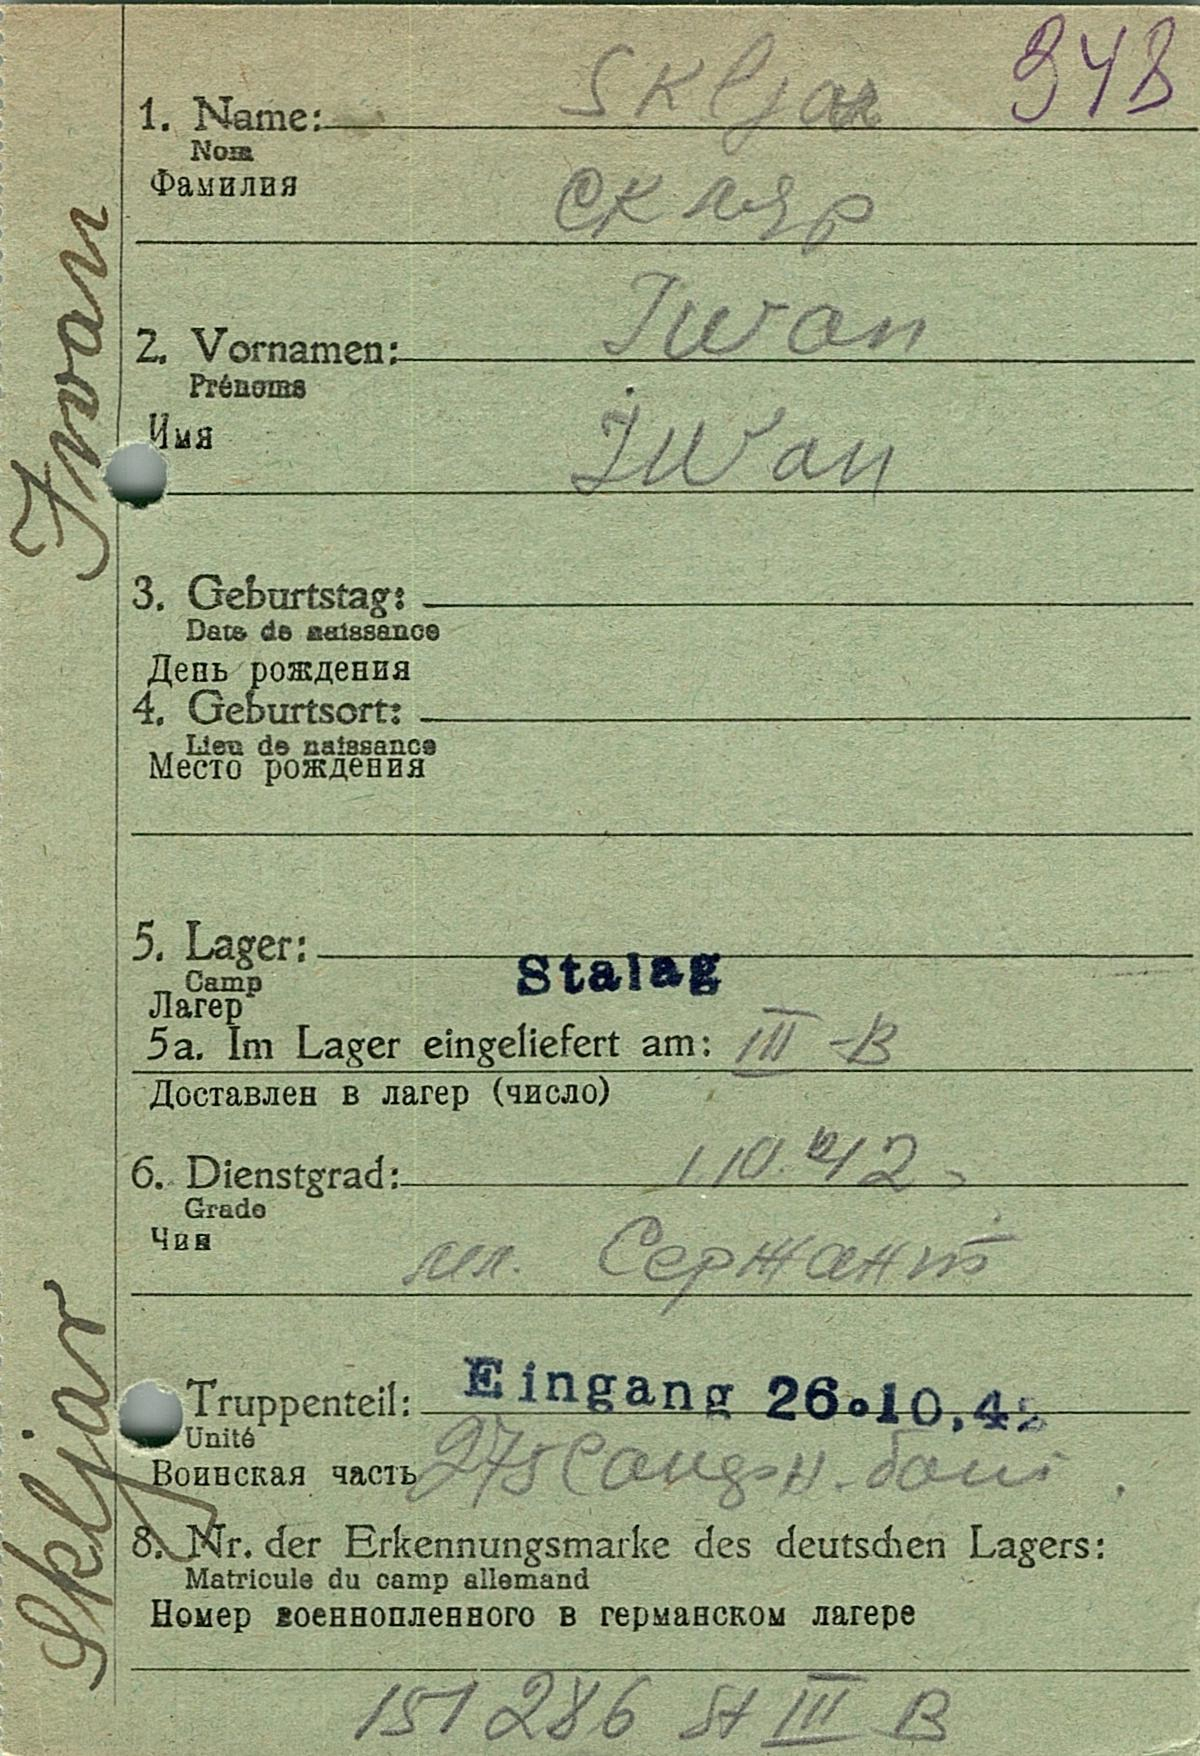 948
Skljar
1. Name:
Nom
Фамилия
Скляр
Iwan
2. Vornamen:
Prénoms
Имя
Iwan
3. Geburtstag:
Date de naissance
День рождения
4. Geburtsort:
Lieu de naissance
Место рождения
5. Lager:
Stalag
Camp
Лагер
5a. Im Lager eingeliefert am: III-B
Доставлен в лагер (число)
1.10.42
6. Dienstgrad:
Grade
Чин
мл. Сержант
Eingang 26.10.42
Truppenteil:
Unité
Воинская часть 275
8. Nr. der Erkennungsmarke des deutschen Lagers:
Matricule du camp allemand
Номер военнопленного в германском лагере
151286 St III B
Skljar Iwan